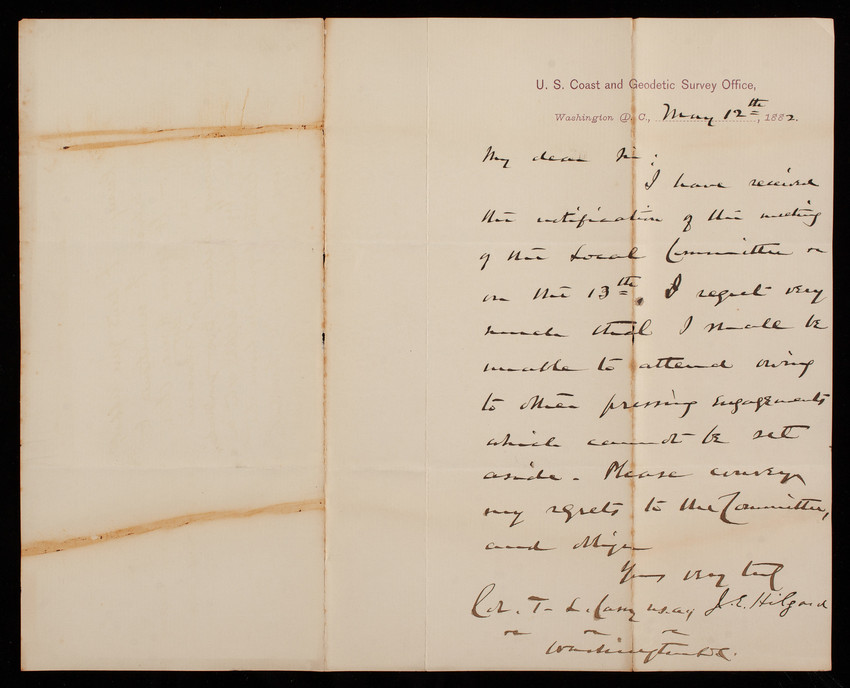 U. S. Coast and Geodetic Survey Office,
Washington D. C., May 12th, 1882.
My dear Sir:
I have received
the notification of the meeting
of the Local Committee
on the 13th. I regret very
much that I shall be
unable to attend owing
to other pressing engagements
which cannot be set
aside. Please convey
my regrets to the Committee,
and oblige
Yours very
Col. T. L. Casey U.S.A. J. E. Hilgard
Washington D.C.